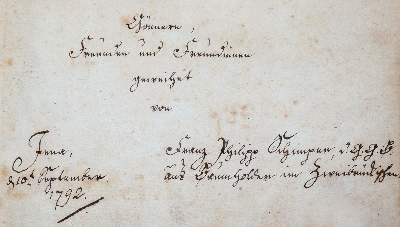 Gönnern,
Freunden und Freundinnen
geweihet
von
Jena,
d. 10t. September
1792.
Franz Philipp d. G. G. B.
aus Baumholder im Zweibrückischen.